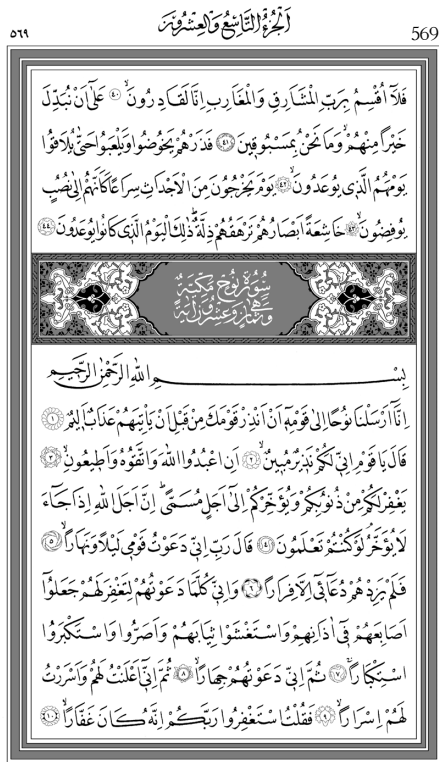 اَلْجُزْءُ التَّاسِعُ وَالْعِشْرُونَ
٥٦٩
569
فَلَٓا اُقْسِمُ بِرَبِّ الْمَشَارِقِ وَالْمَغَارِبِ اِنَّا لَقَادِرُونَۙ ﴿٤٠﴾ عَلٰٓى اَنْ نُبَدِّلَ
خَيْراً مِنْهُمْۙ وَمَا نَحْنُ بِمَسْبُوقِينَ ﴿٤١﴾ فَذَرْهُمْ يَخُوضُوا وَيَلْعَبُوا حَتّٰى يُلَاقُوا
يَوْمَهُمُ الَّذ۪ي يُوعَدُونَۙ ﴿٤٢﴾ يَوْمَ يَخْرُجُونَ مِنَ الْاَجْدَاثِ سِرَاعاً كَاَنَّهُمْ اِلٰى نُصُبٍ
يُوفِضُونَۙ ﴿٤٣﴾ خَاشِعَةً اَبْصَارُهُمْ تَرْهَقُهُمْ ذِلَّةٌۜ ذٰلِكَ الْيَوْمُ الَّذ۪ي كَانُوا يُوعَدُونَ ﴿٤٤﴾
سُورَةُ نُوحٍ مَكِّيَّةٌ
وَهِيَ ثَمَانٍ وَعِشْرُونَ اٰيَةً
بِسْمِ اللّٰهِ الرَّحْمٰنِ الرَّح۪يمِ
اِنَّٓا اَرْسَلْنَا نُوحاً اِلٰى قَوْمِه۪ٓ اَنْ اَنْذِرْ قَوْمَكَ مِنْ قَبْلِ اَنْ يَأْتِيَهُمْ عَذَابٌ اَل۪يمٌ ﴿١﴾
قَالَ يَا قَوْمِ اِنّ۪ي لَكُمْ نَذ۪يرٌ مُب۪ينٌۙ ﴿٢﴾ اَنِ اعْبُدُوا اللّٰهَ وَاتَّقُوهُ وَاَط۪يعُونِۙ ﴿٣﴾
يَغْفِرْ لَكُمْ مِنْ ذُنُوبِكُمْ وَيُؤَخِّرْكُمْ اِلٰٓى اَجَلٍ مُسَمًّىۜ اِنَّ اَجَلَ اللّٰهِ اِذَا جَٓاءَ
لَا يُؤَخَّرُۢ لَوْ كُنْتُمْ تَعْلَمُونَ ﴿٤﴾ قَالَ رَبِّ اِنّ۪ي دَعَوْتُ قَوْم۪ي لَيْلاً وَنَهَاراًۙ ﴿٥﴾
فَلَمْ يَزِدْهُمْ دُعَٓائ۪ٓي اِلَّا فِرَاراً ﴿٦﴾ وَاِنّ۪ي كُلَّمَا دَعَوْتُهُمْ لِتَغْفِرَ لَهُمْ جَعَلُٓوا
اَصَابِعَهُمْ ف۪ٓي اٰذَانِهِمْ وَاسْتَغْشَوْا ثِيَابَهُمْ وَاَصَرُّوا وَاسْتَكْبَرُوا
اسْتِكْبَاراًۚ ﴿٧﴾ ثُمَّ اِنّ۪ي دَعَوْتُهُمْ جِهَاراًۙ ﴿٨﴾ ثُمَّ اِنّ۪ٓي اَعْلَنْتُ لَهُمْ وَاَسْرَرْتُ
لَهُمْ اِسْرَاراًۙ ﴿٩﴾ فَقُلْتُ اسْتَغْفِرُوا رَبَّكُمْ اِنَّهُ كَانَ غَفَّاراًۙ ﴿١٠﴾